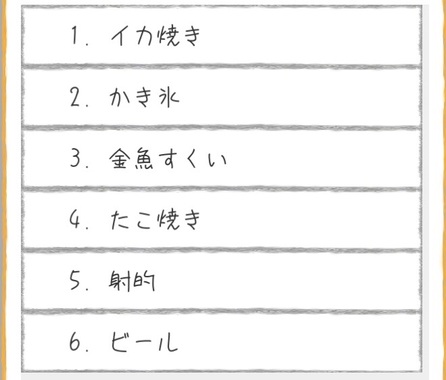 1. イカ焼き
2. かき氷
3. 金魚すくい
4. たこ焼き
5. 射的
6. ビール